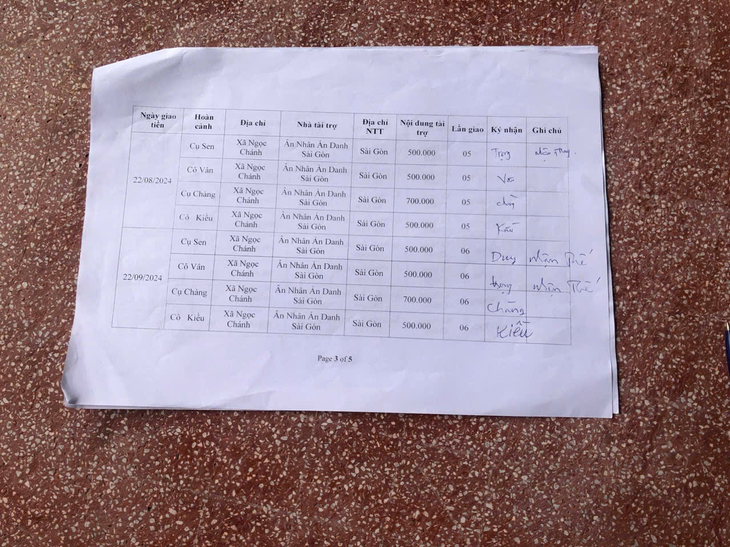 Ngày giao tiền Hoàn cảnh Địa chỉ Nhà tài trợ Địa chỉ NTT Nội dung tài trợ Lần giao Ký nhận Ghi chú
22/08/2024
Cụ Sen Xã Ngọc Chánh Ân Nhân Ẩn Danh Sài Gòn Sài Gòn 500.000 05
Cô Vân Xã Ngọc Chánh Ân Nhân Ẩn Danh Sài Gòn Sài Gòn 500.000 05
Cụ Chàng Xã Ngọc Chánh Ân Nhân Ẩn Danh Sài Gòn Sài Gòn 700.000 05
Cô Kiều Xã Ngọc Chánh Ân Nhân Ẩn Danh Sài Gòn Sài Gòn 500.000 05
22/09/2024
Cụ Sen Xã Ngọc Chánh Ân Nhân Ẩn Danh Sài Gòn Sài Gòn 500.000 06 Duy nhận Thế
Cô Vân Xã Ngọc Chánh Ân Nhân Ẩn Danh Sài Gòn Sài Gòn 500.000 06 nhận Thế
Cụ Chàng Xã Ngọc Chánh Ân Nhân Ẩn Danh Sài Gòn Sài Gòn 700.000 06 Chàng
Cô Kiều Xã Ngọc Chánh Ân Nhân Ẩn Danh Sài Gòn Sài Gòn 500.000 06 Kiều
Page 3 of 5